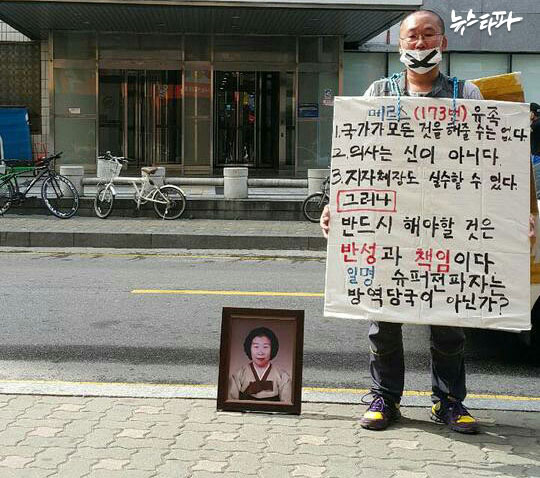 뉴스타파
메르스 (173번) 유족
1. 국가가 모든 것을 해줄 수는 없다.
2. 의사는 신이 아니다.
3. 지자체장도 실수할 수 있다.
그러나
반드시 해야할 것은
반성과 책임이다
일명 슈퍼전파자는
방역당국이 아닌가?